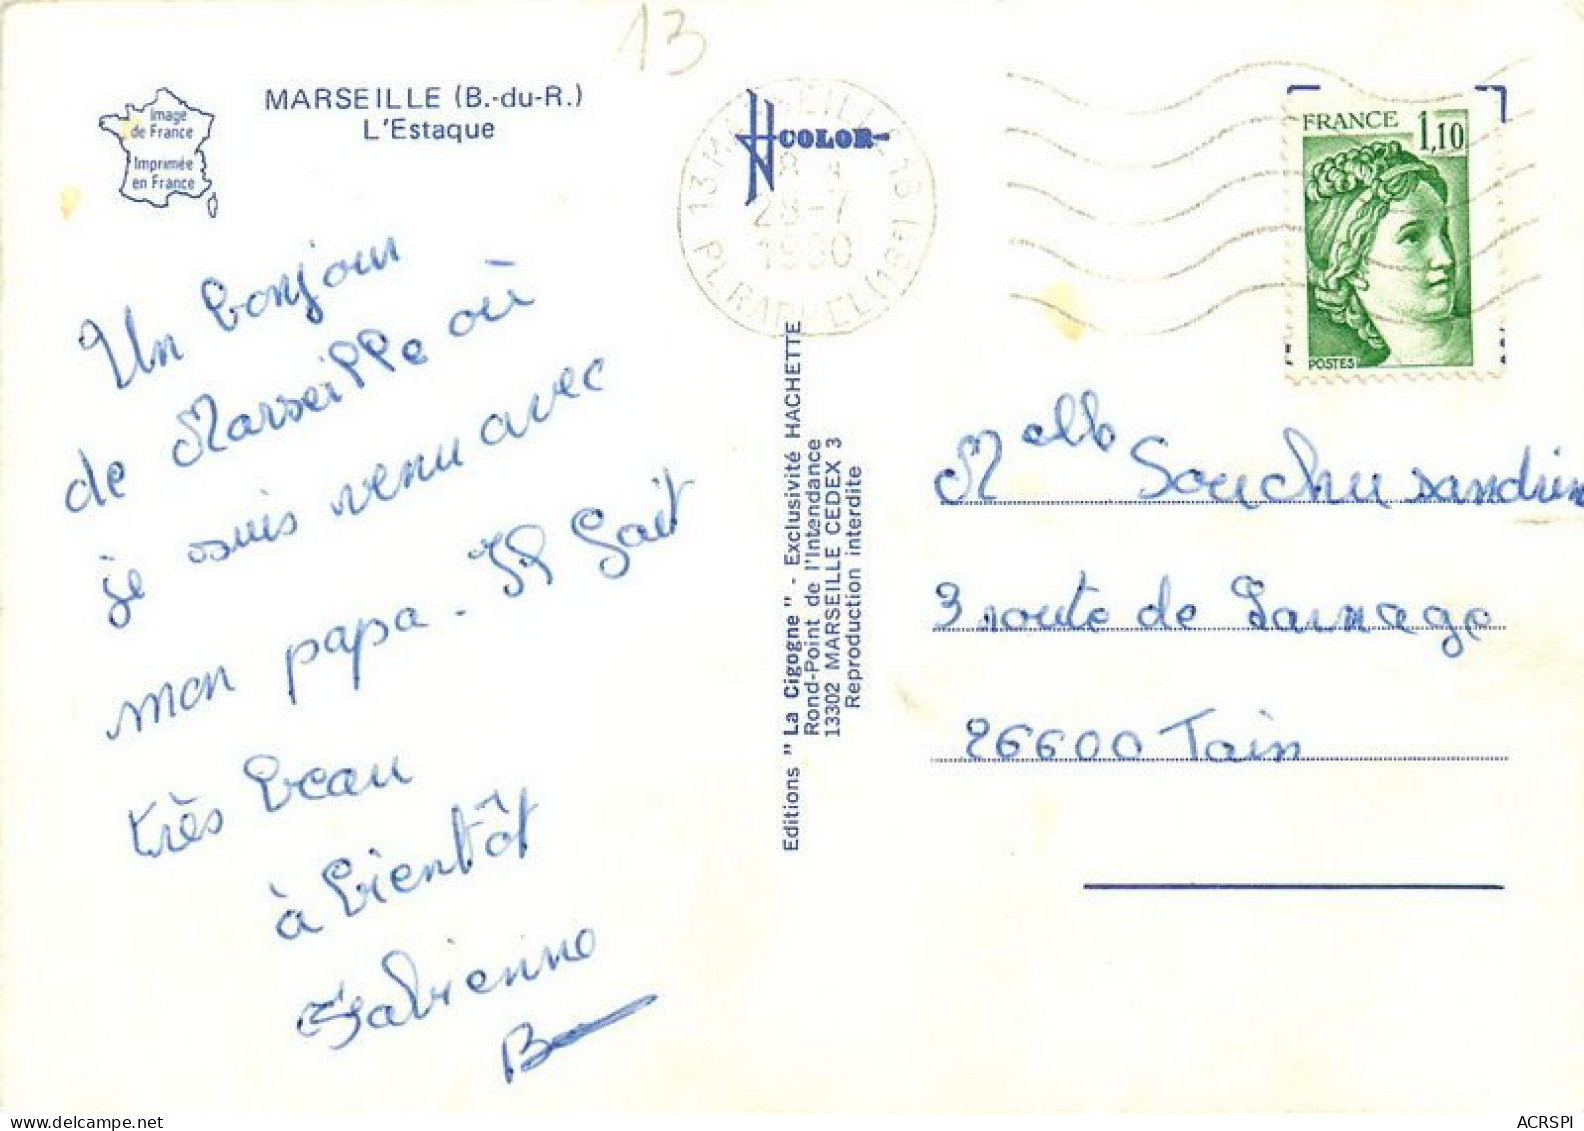 13
MARSEILLE (B.-du-R.)
L'Estaque
Image
de France
Imprimée
en France
Un bonjour
de Marseille où
je suis venu avec
mon papa. Il fait
très beau
à bientôt
Fabienne
B
COLOR
28-7
1980
Editions "La Cigogne" - Exclusivité HACHETTE
Rond-Point de l'Intendance
13302 MARSEILLE CEDEX 3
Reproduction interdite
FRANCE 1,10
POSTES
Melle Souchu Sandrin
3 route de Larnage
26600 Tain
ACRSPI